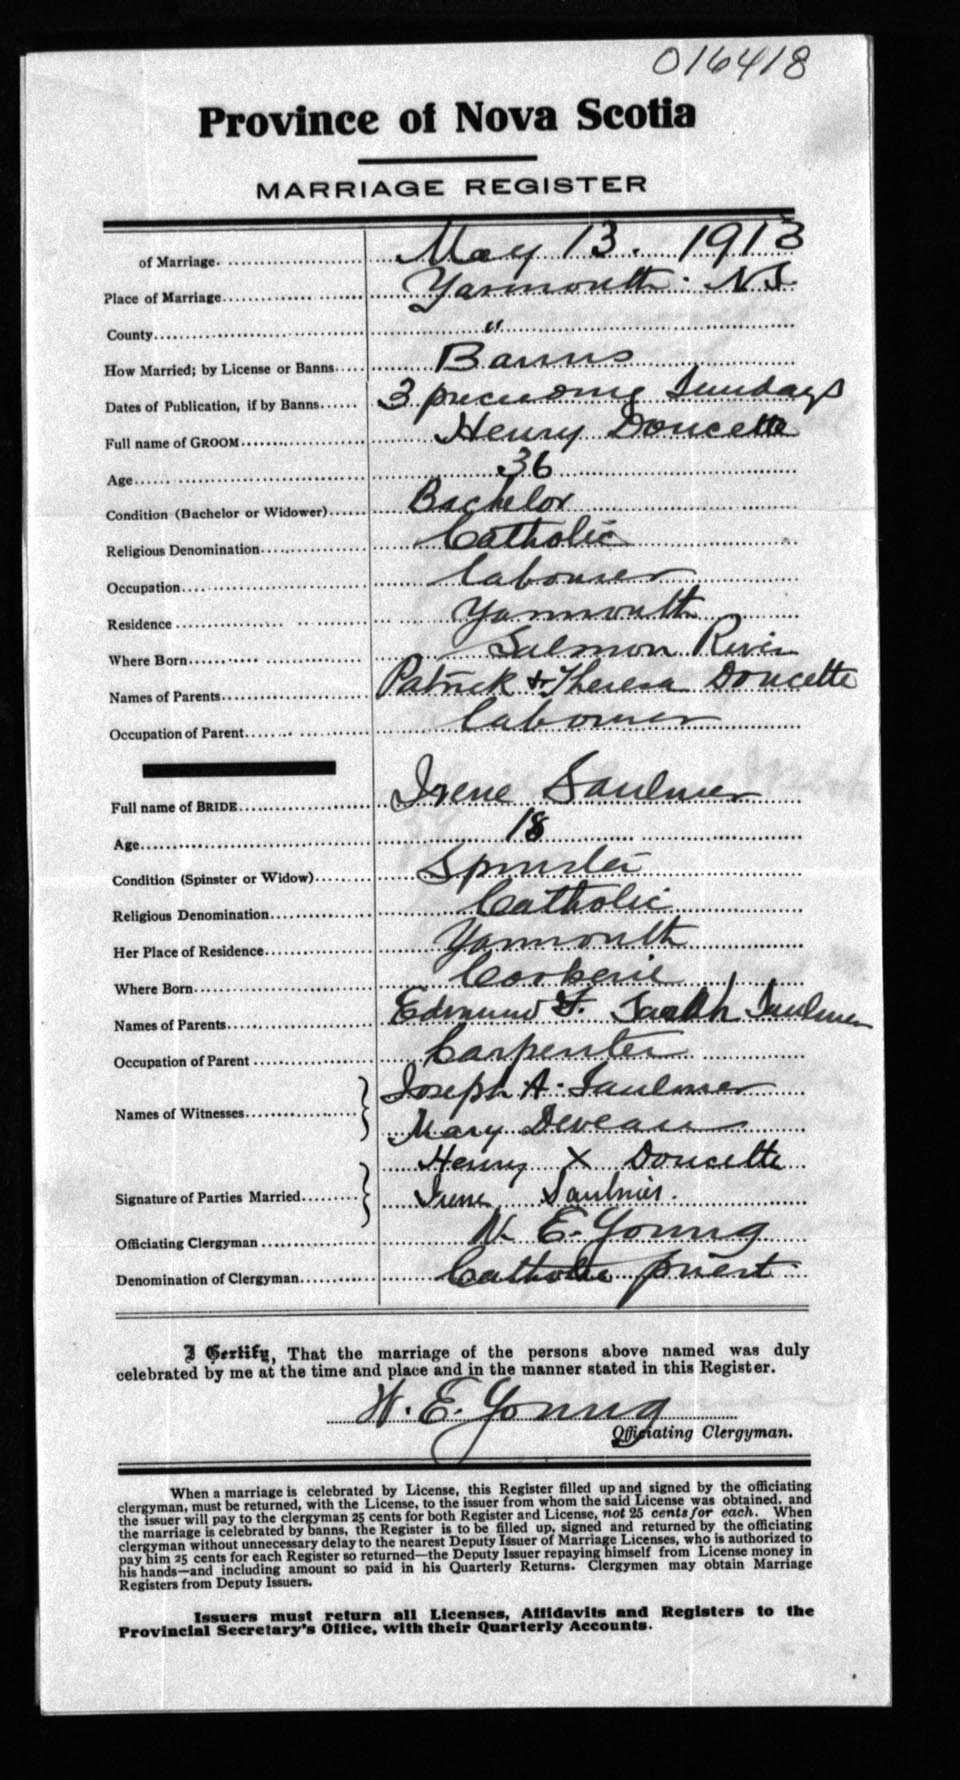 016418
Province of Nova Scotia
MARRIAGE REGISTER
of Marriage. May 13. 1913
Place of Marriage Yarmouth. NS.
County "
How Married; by License or Banns Banns
Dates of Publication, if by Banns 3 preceding Sundays
Full name of GROOM Henry Doucette
Age 36
Condition (Bachelor or Widower) Bachelor
Religious Denomination Catholic
Occupation labourer
Residence Yarmouth
Where Born Salmon River
Names of Parents Patrick & Theresa Doucette
Occupation of Parent labourer
Full name of BRIDE Irene Saulnier
Age 18
Condition (Spinster or Widow) Spinster
Religious Denomination Catholic
Her Place of Residence Yarmouth
Where Born Corberie
Names of Parents Edmund & Sarah Saulnier
Occupation of Parent Carpenter
Names of Witnesses Joseph A. Saulnier
Mary Deveau
Henry X Doucette
Signature of Parties Married Irene Saulnier.
Officiating Clergyman W. E. Young
Denomination of Clergyman Catholic priest
I Certify, That the marriage of the persons above named was duly
celebrated by me at the time and place and in the manner stated in this Register.
W. E. Young
Officiating Clergyman.
When a marriage is celebrated by License, this Register filled up and signed by the officiating
clergyman, must be returned, with the License, to the issuer from whom the said License was obtained, and
the issuer will pay to the clergyman 25 cents for both Register and License, not 25 cents for each. When
the marriage is celebrated by banns, the Register is to be filled up, signed and returned by the officiating
clergyman without unnecessary delay to the nearest Deputy Issuer of Marriage Licenses, who is authorized to
pay him 25 cents for each Register so returned—the Deputy Issuer repaying himself from License money in
his hands—and including amount so paid in his Quarterly Returns. Clergymen may obtain Marriage
Registers from Deputy Issuers.
Issuers must return all Licenses, Affidavits and Registers to the
Provincial Secretary's Office, with their Quarterly Accounts.